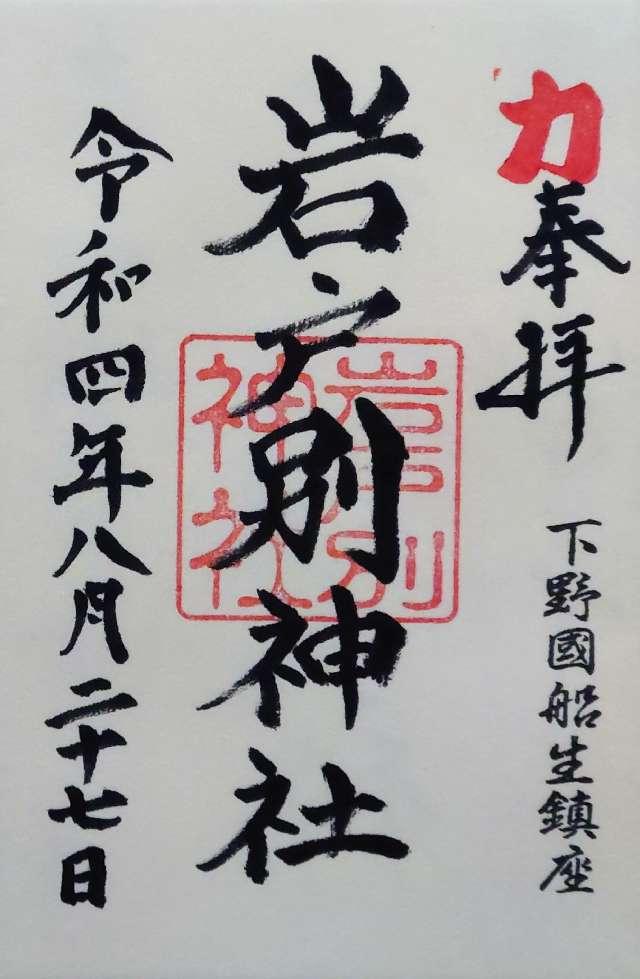 力
奉拝
下野國船生鎮座
岩戸別神社
岩戸別
神社
令和四年八月二十七日